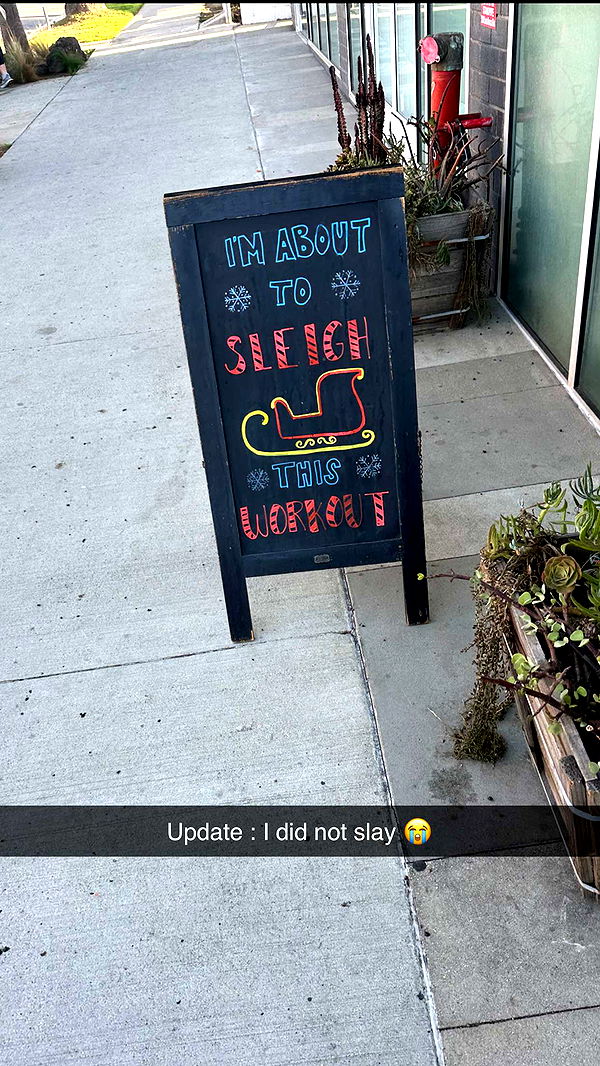 I'M ABOUT
TO
SLEIGH
THIS
WORKOUT
Update : I did not slay 😭